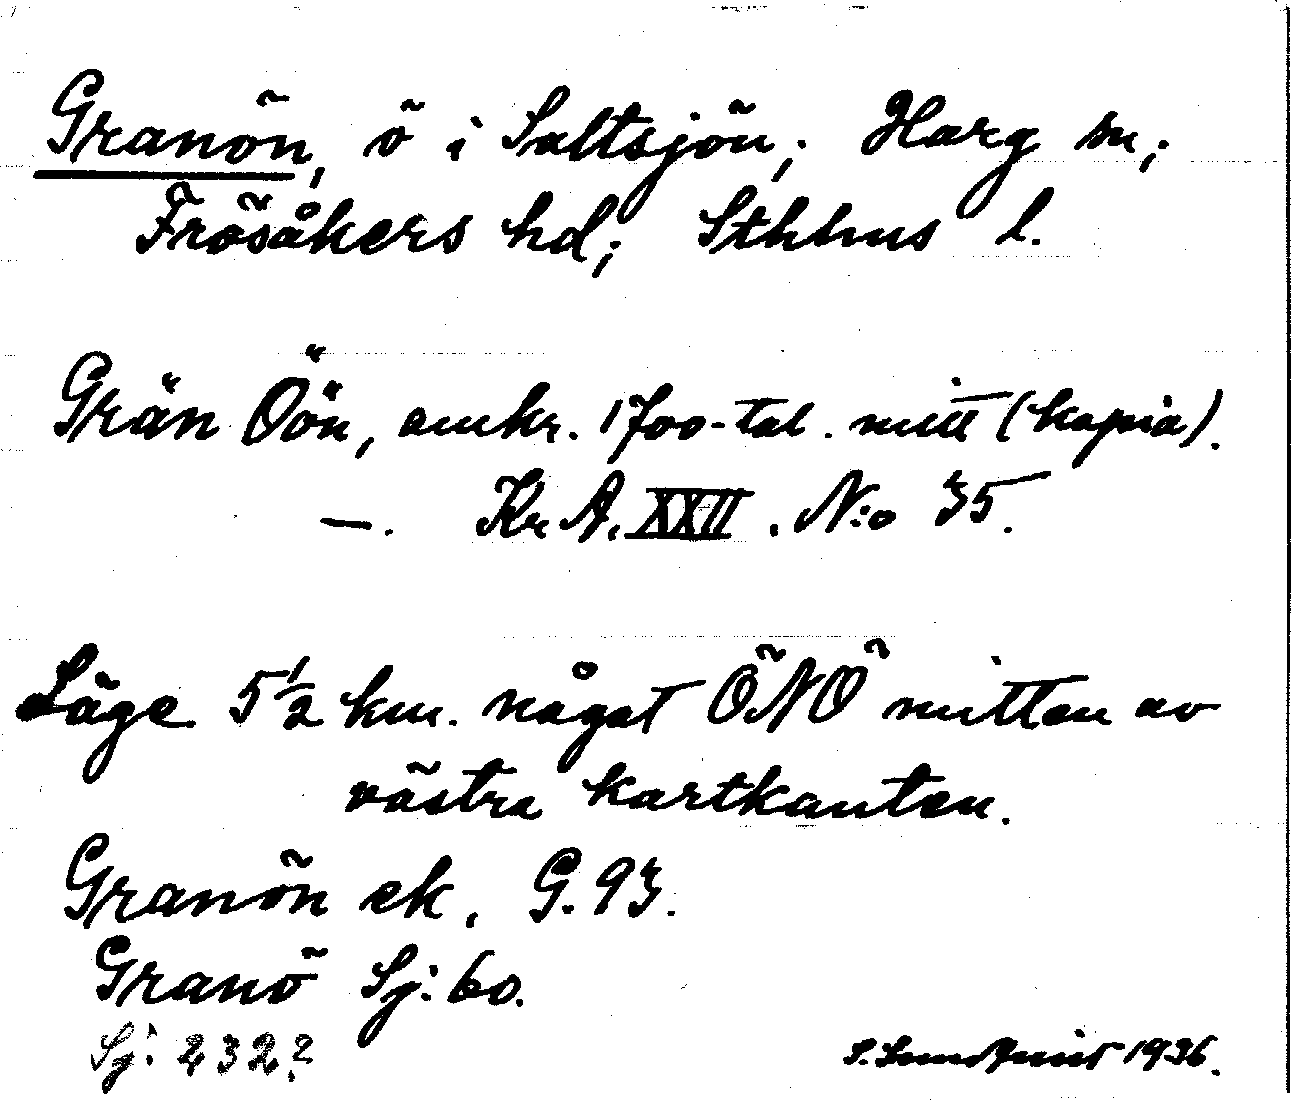 Granön, ö i Saltsjön; Harg sn;
Frösåkers hd; Sthlms l.
Grän Öön, omkr. 1700-tal. mitt (kopia).
—. Kr A. XXII. N:o 35.
Läge 5 1/2 km. något ÖNÖ mitten av
västra kartkanten.
Granön ek. G. 93.
Granö Sj: 60.
Sj: 232?
S. Sundqvist 1936.